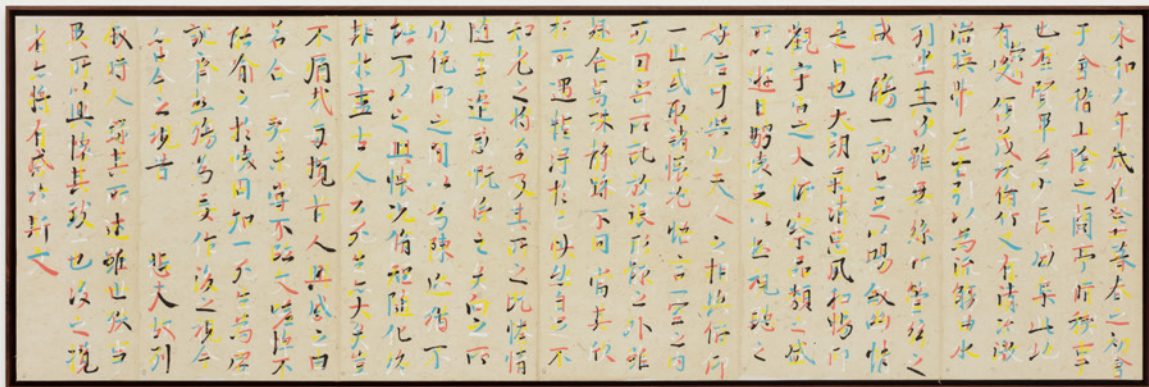 永和九年歲在癸丑暮春之初會
于會稽山陰之蘭亭脩稧事
也群賢畢至少長咸集此地
有崇山峻領茂林脩竹又有清流激
湍暎帶左右引以為流觴曲水
列坐其次雖無絲竹管弦之
盛一觴一詠亦足以暢敘幽情
是日也天朗氣清惠風和暢仰
觀宇宙之大俯察品類之盛
所以遊目騁懷足以極視聽之
娛信可樂也夫人之相與俯仰
一世或取諸懷抱悟言一室之內
或因寄所託放浪形骸之外雖
趣舍萬殊靜躁不同當其欣
於所遇蹔得於己快然自足不
知老之將至及其所之既惓情
隨事遷感慨係之矣向之所
欣俛仰之間以為陳跡猶不
能不以之興懷況脩短隨化終
期於盡古人云死生亦大矣豈
不痛哉每攬昔人興感之由
若合一契未嘗不臨文嗟悼不
能喻之於懷固知一死生為虛
誕齊彭殤為妄作後之視今
亦由今之視昔 悲夫故列
敘時人錄其所述雖世殊事
異所以興懷其致一也後之攬
者亦將有感於斯文